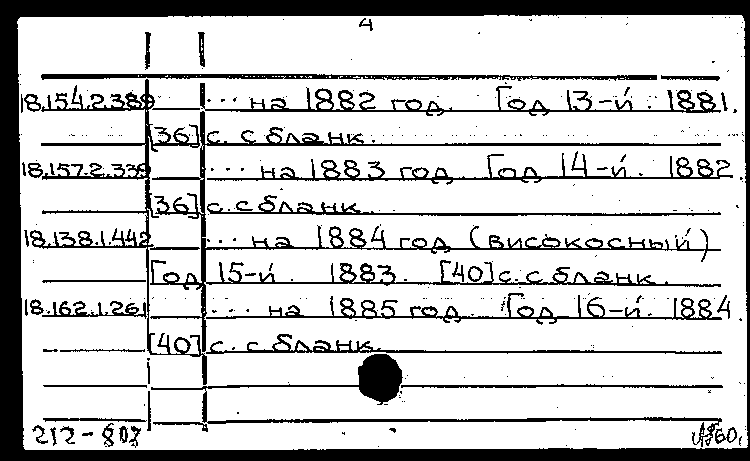 4
18.154.2.389 ... на 1882 год. Год 13-й. 1881.
[36] с. с бланк.
18.157.2.339 ... на 1883 год. Год 14-й. 1882.
[36] с. с бланк.
18.138.1.442 ... на 1884 год (високосный)
Год 15-й. 1883. [40] с. с бланк.
18.162.1.261 ... на 1885 год. Год 16-й. 1884
[40] с. с бланк.
212-807